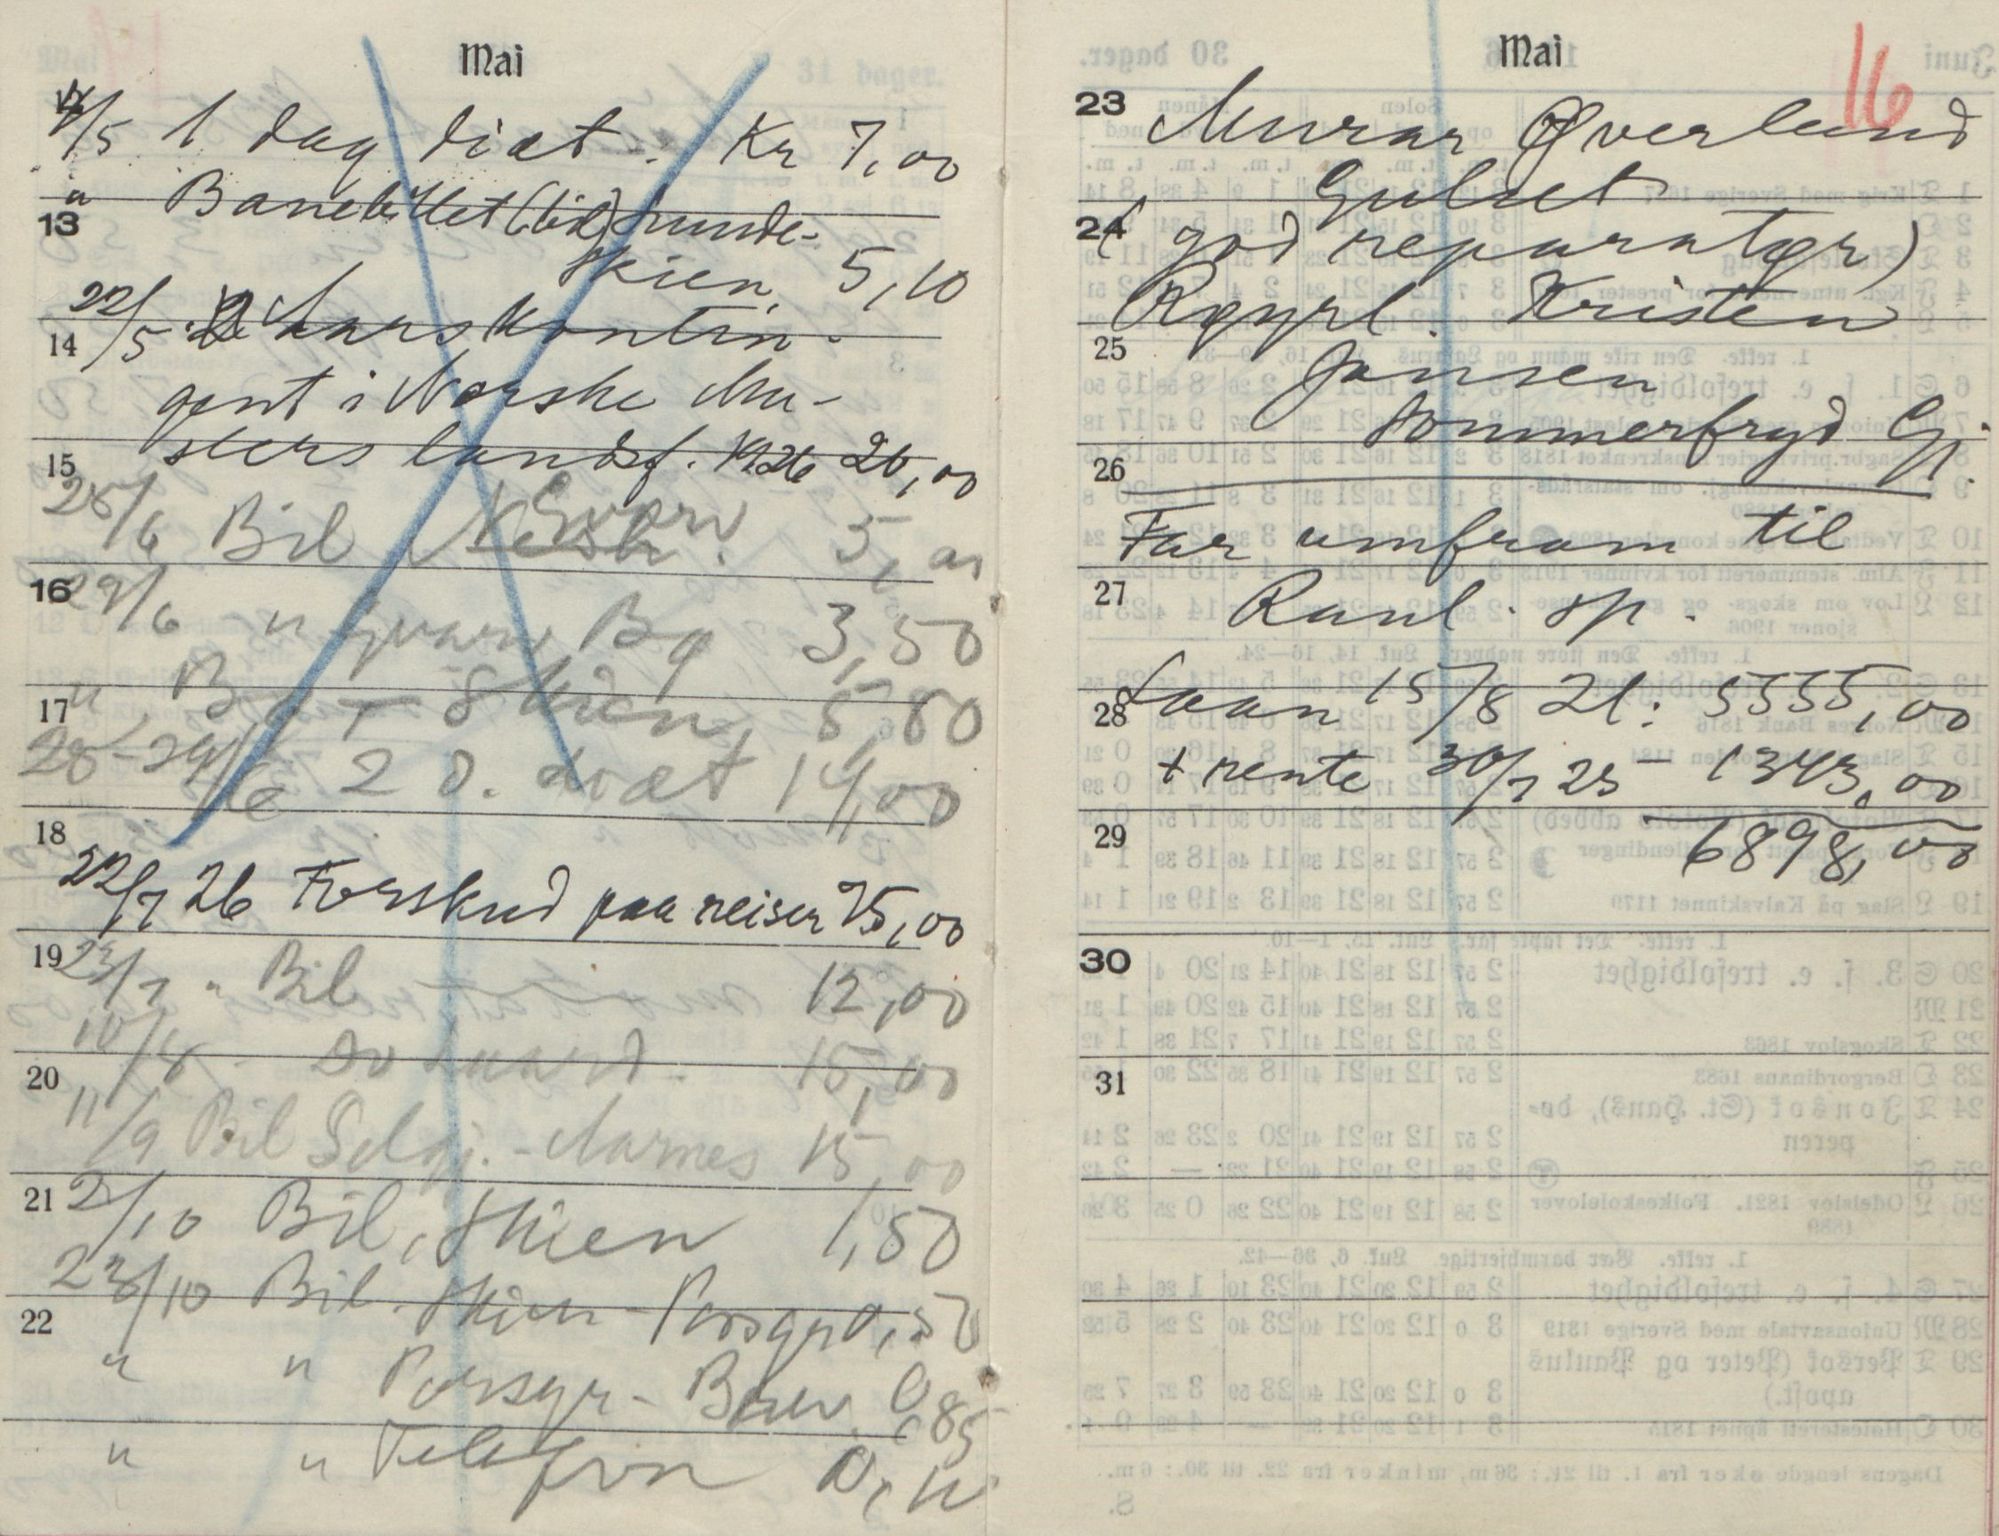 Mai
4/5 1 dag diæt. Kr 7,00
" Banebillet (bil) Lunde-
13
Skien, 5,10
22/5. Aarskontin-
14
gent i Norske Mu-
sters landsf. 1926 20,00
15
28/6 Bil Gvarv 5,00
16
29/6 " Gvarv Bø 3,50
" Bø - Skien 5,80
17
28-29/6 2 d. diæt 14,00
18
22/7 26 Forskud paa reiser 75,00
19
23/7 " Bil 12,00
10/8 - Do 15,00
20
11/9 Bil Selgj. - Aarnes 15,00
21
2/10 Bil, Skien 1,50
23/10 Bil Skien - Porsgr 0,50
22
" " Porsgr - Brev. 0,85
" " Telefon 0,10
Mai
16
23
Murar Øverlund
Gulset
24
(god reparatør)
Røyrl. Kristen
25
Jansen
Sommerfryd Gj.
26
Far umfram til
27
Raul. sp.
Laan 15/8 21: 5555,00
28
+ rente 30/7 25 - 1343,00
29
6898,00
30
31